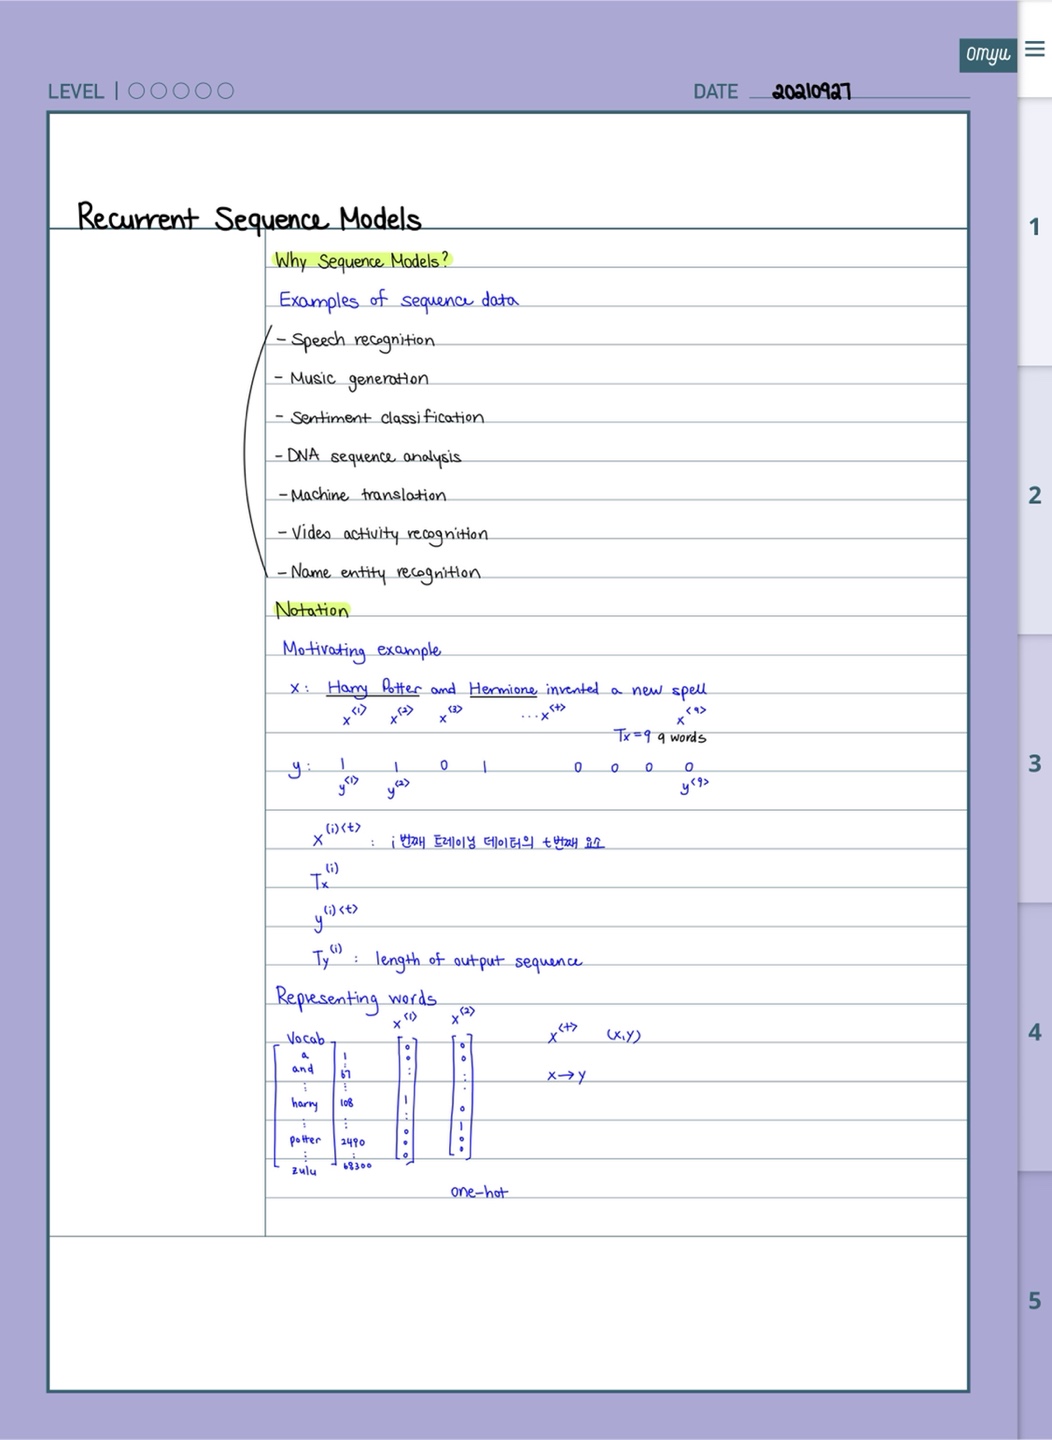 omyu
LEVEL
DATE 20210927
Recurrent Sequence Models
Why Sequence Models?
Examples of sequence data
- Speech recognition
- Music generation
- Sentiment classification
- DNA sequence analysis
- Machine translation
- Video activity recognition
- Name entity recognition
Notation
Motivating example
x: Harry Potter and Hermione invented a new spell
x<1> x<2> x<3> ... x<t> x<9>
Tx=9 9 words
y: 1 1 0 1 0 0 0 0
y<1> y<2> y<9>
x(i)<t> : i번째 트레이닝 데이터의 t번째 요소
Tx(i)
y(i)<t>
Ty(i) : length of output sequence
Representing words
x<1> x<2>
x<t> (x,y)
x→y
Vocab
a 1
and 67
harry 108
potter 2490
zulu 68300
0 0 : 1 : 0 0 0
0 0 : : 0 1 0 0
one-hot
1
2
3
4
5